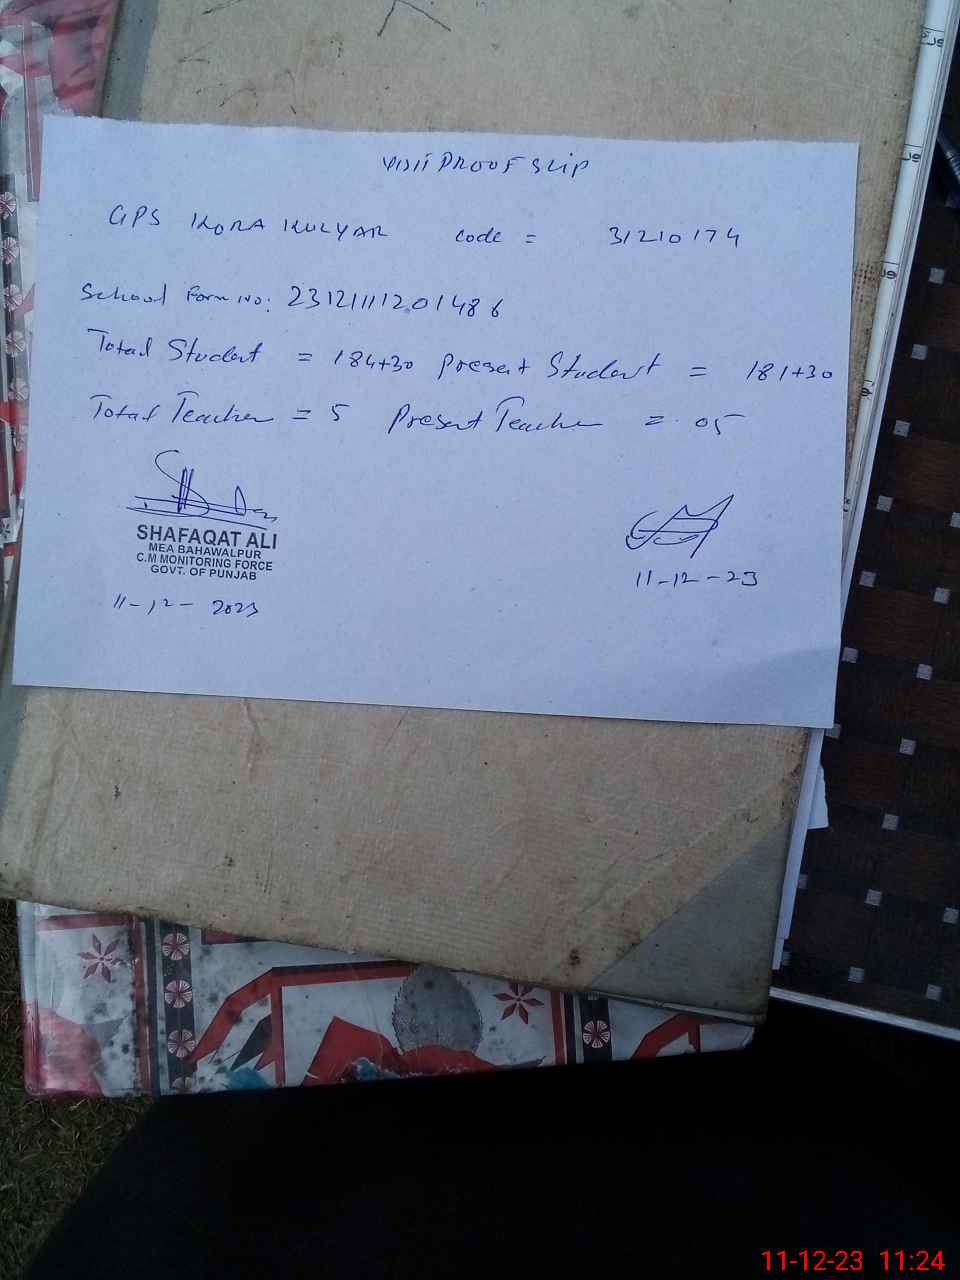 VISIT PROOF SLIP
GPS KORA KULYAR code = 31210174
School Form No: 2312111201486
Total Student = 184+30 Present Student = 181+30
Total Teacher = 5 Present Teacher = 05
SHAFAQAT ALI
MEA BAHAWALPUR
C.M MONITORING FORCE
GOVT. OF PUNJAB
11-12-2023
11-12-23
11-12-23 11:24